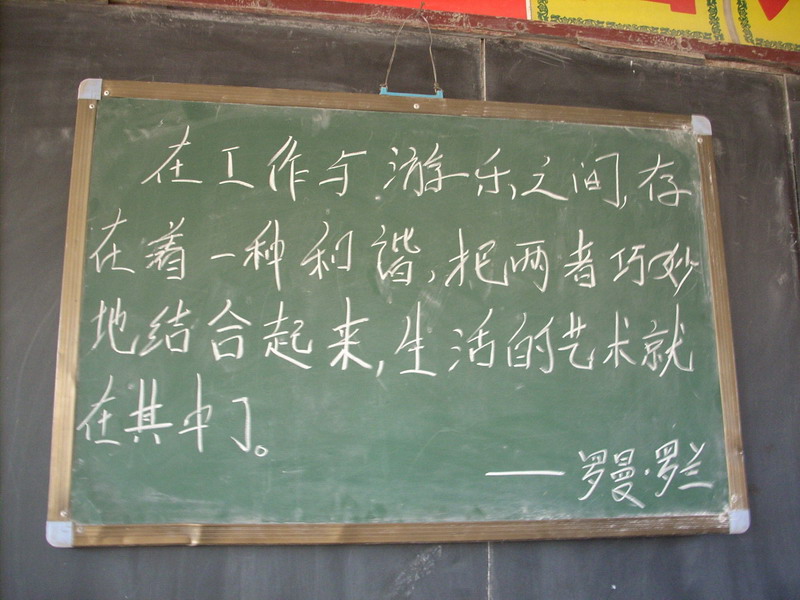 在工作与游乐之间,存
在着一种和谐,把两者巧妙
地结合起来,生活的艺术就
在其中了。
——罗曼·罗兰